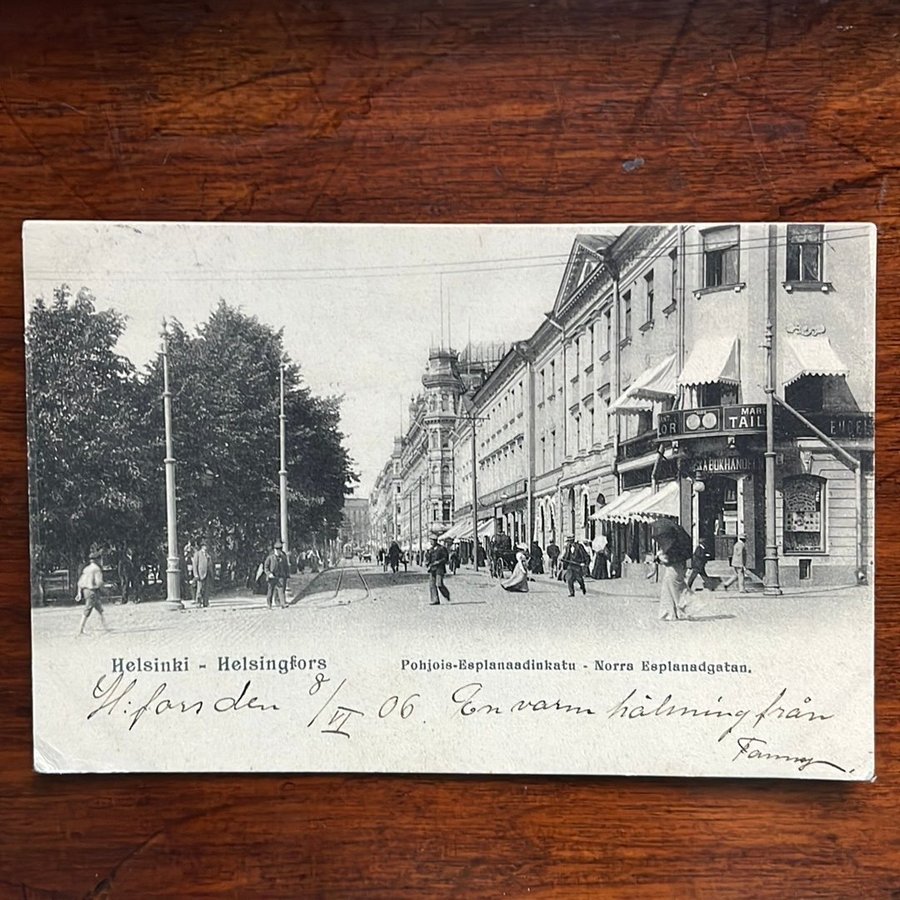 MAR
TAIL
BOKHANDEL
Helsinki - Helsingfors
Pohjois-Esplanaadinkatu - Norra Esplanadgatan.
H:fors den 8/VI 06. En varm hälsning från
Fanny